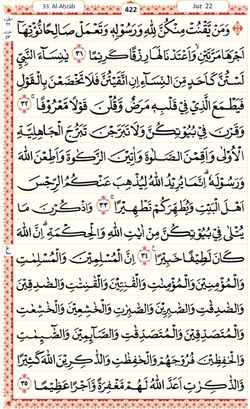 33. Al-Ahzab
422
Juz 22
وَمَنْ يَّقْنُتْ مِنْكُنَّ لِلّٰهِ وَرَسُوْلِهٖ وَتَعْمَلْ صَالِحًا نُّؤْتِهَآ
اَجْرَهَا مَرَّتَيْنِۙ وَاَعْتَدْنَا لَهَا رِزْقًا كَرِيْمًا ٣١ يٰنِسَاۤءَ النَّبِيِّ
لَسْتُنَّ كَاَحَدٍ مِّنَ النِّسَاۤءِ اِنِ اتَّقَيْتُنَّ فَلَا تَخْضَعْنَ بِالْقَوْلِ
فَيَطْمَعَ الَّذِيْ فِيْ قَلْبِهٖ مَرَضٌ وَّقُلْنَ قَوْلًا مَّعْرُوْفًاۚ ٣٢
وَقَرْنَ فِيْ بُيُوْتِكُنَّ وَلَا تَبَرَّجْنَ تَبَرُّجَ الْجَاهِلِيَّةِ
الْاُوْلٰى وَاَقِمْنَ الصَّلٰوةَ وَاٰتِيْنَ الزَّكٰوةَ وَاَطِعْنَ اللّٰهَ
وَرَسُوْلَهٗۗ اِنَّمَا يُرِيْدُ اللّٰهُ لِيُذْهِبَ عَنْكُمُ الرِّجْسَ
اَهْلَ الْبَيْتِ وَيُطَهِّرَكُمْ تَطْهِيْرًاۚ ٣٣ وَاذْكُرْنَ مَا
يُتْلٰى فِيْ بُيُوْتِكُنَّ مِنْ اٰيٰتِ اللّٰهِ وَالْحِكْمَةِۗ اِنَّ اللّٰهَ
كَانَ لَطِيْفًا خَبِيْرًا ٣٤ اِنَّ الْمُسْلِمِيْنَ وَالْمُسْلِمٰتِ
وَالْمُؤْمِنِيْنَ وَالْمُؤْمِنٰتِ وَالْقٰنِتِيْنَ وَالْقٰنِتٰتِ وَالصّٰدِقِيْنَ
وَالصّٰدِقٰتِ وَالصّٰبِرِيْنَ وَالصّٰبِرٰتِ وَالْخٰشِعِيْنَ وَالْخٰشِعٰتِ
وَالْمُتَصَدِّقِيْنَ وَالْمُتَصَدِّقٰتِ وَالصَّاۤىِٕمِيْنَ وَالصّٰۤىِٕمٰتِ
وَالْحٰفِظِيْنَ فُرُوْجَهُمْ وَالْحٰفِظٰتِ وَالذّٰكِرِيْنَ اللّٰهَ كَثِيْرًا
وَّالذّٰكِرٰتِ اَعَدَّ اللّٰهُ لَهُمْ مَّغْفِرَةً وَّاَجْرًا عَظِيْمًا ٣٥